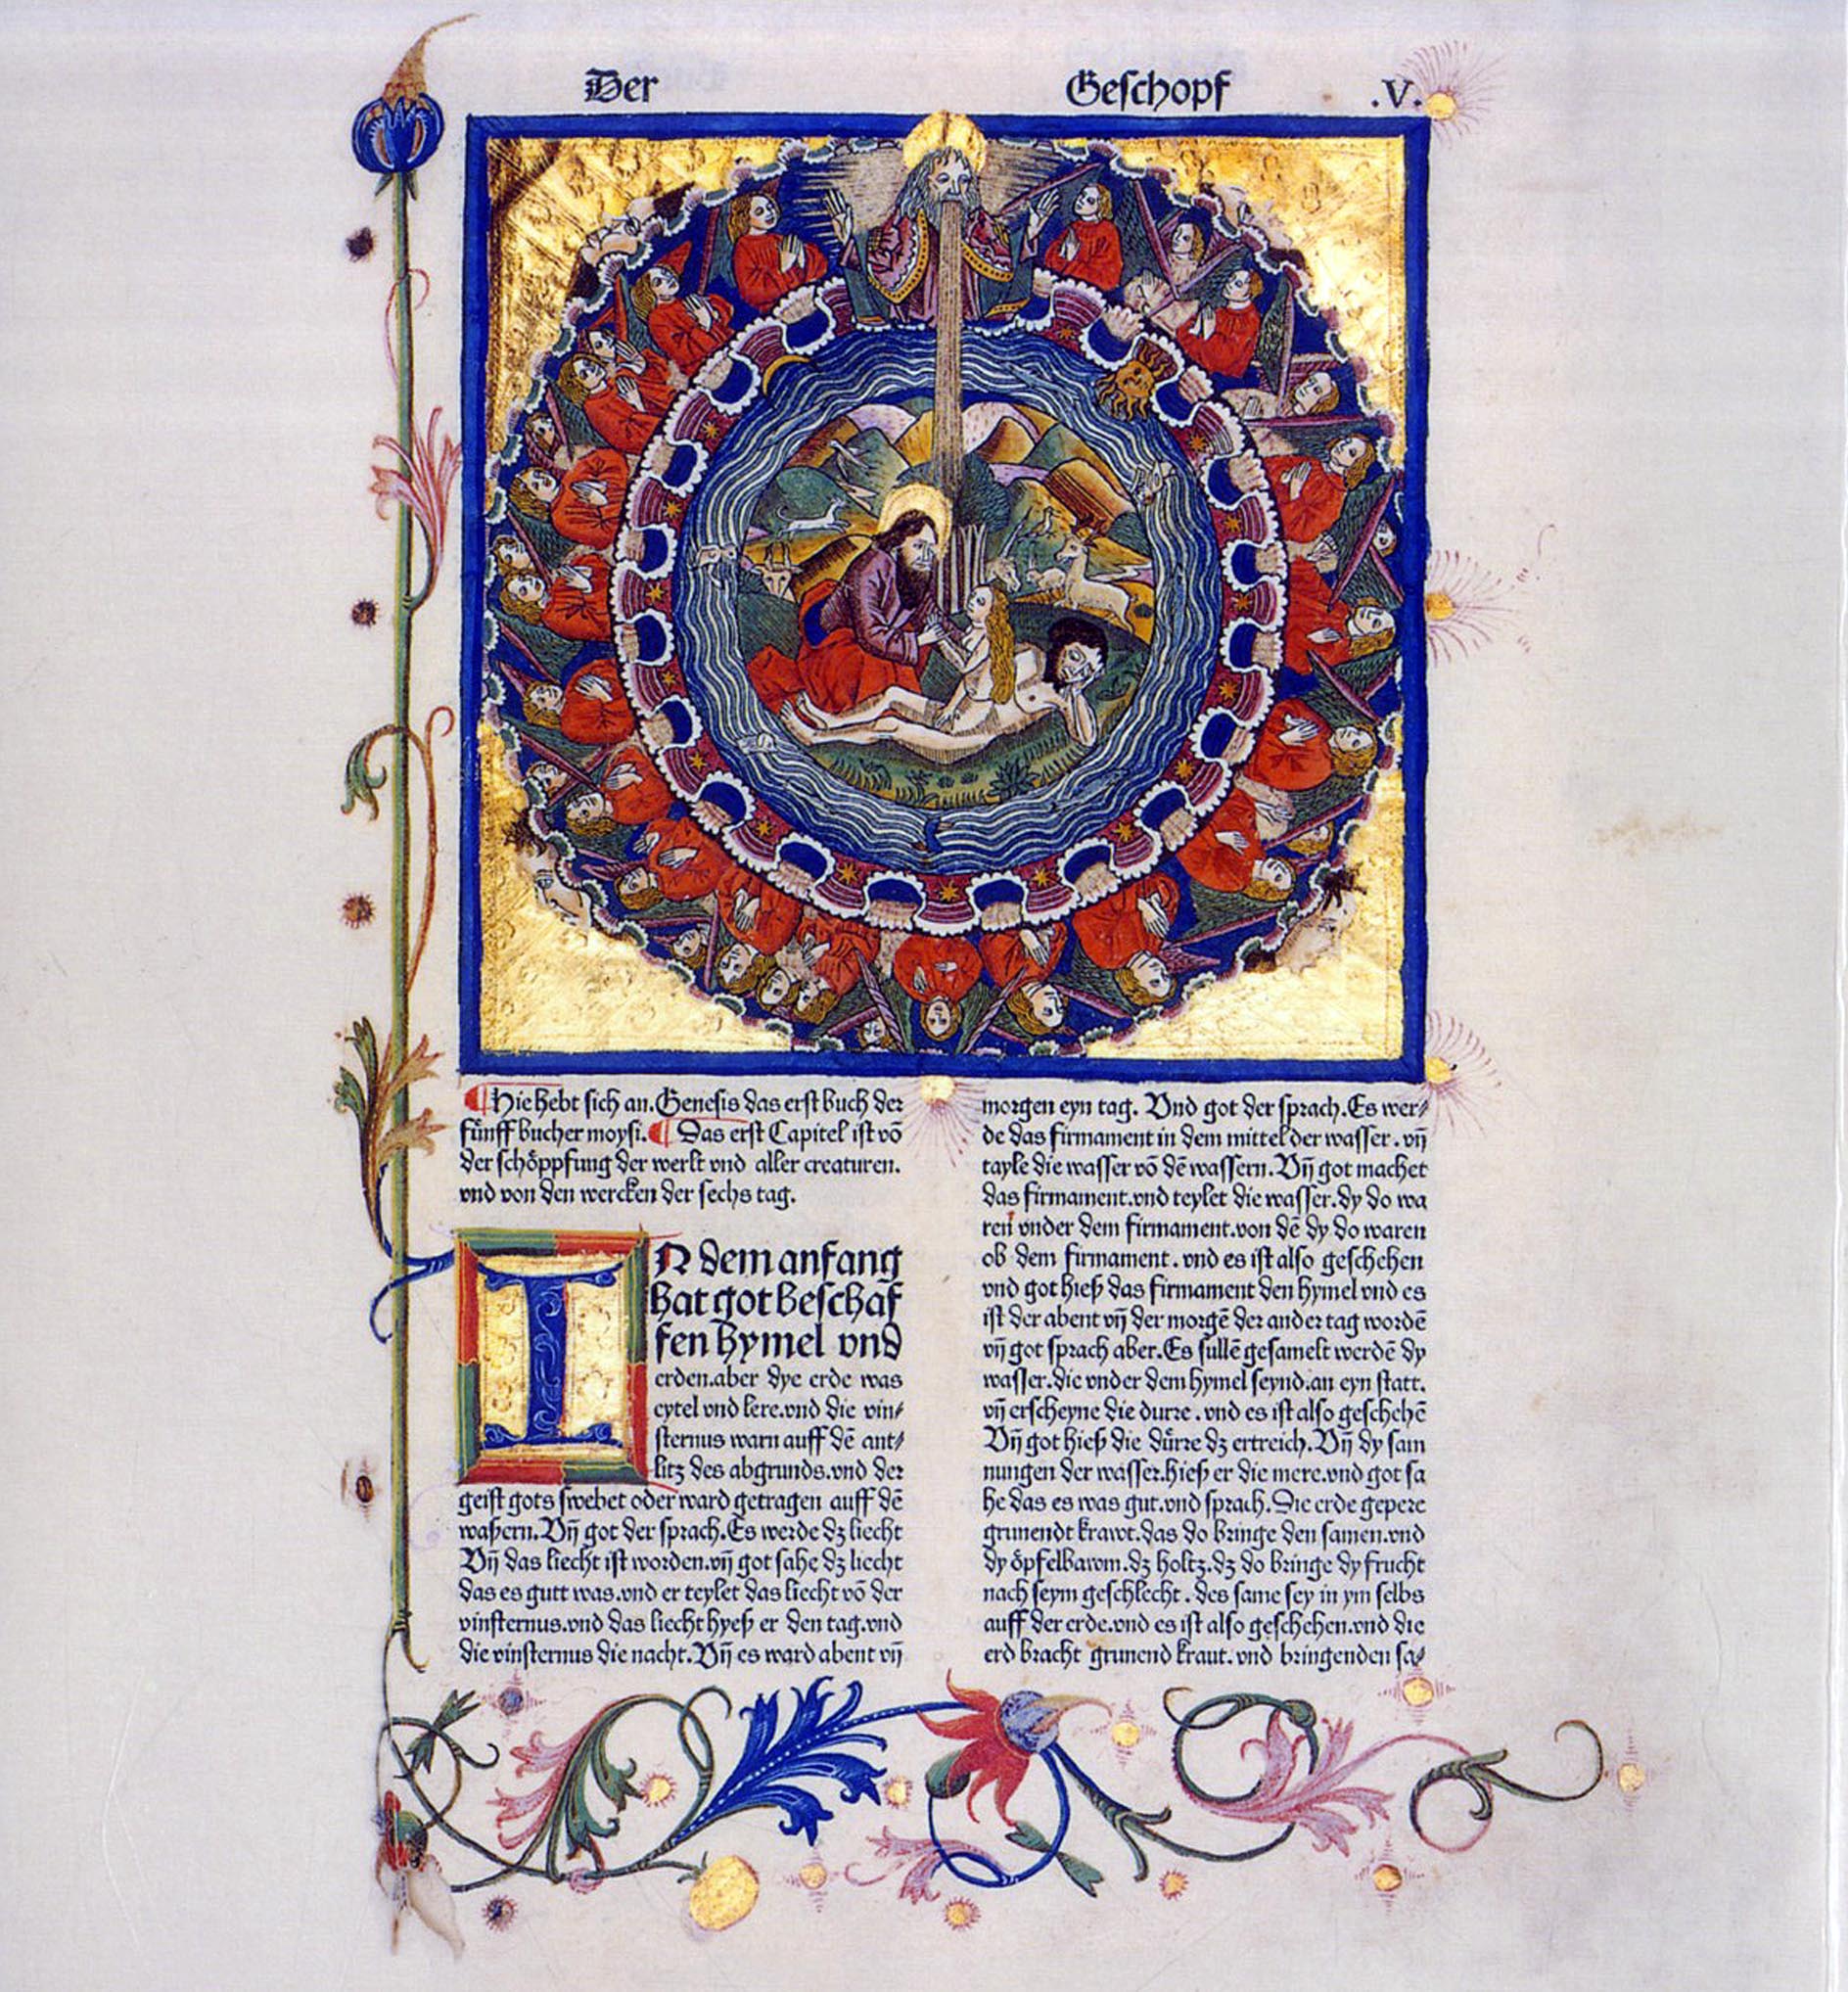 Der Geschopf .V.
Hie hebt sich an. Genesis das erst buch der
fünff bucher moysi. Das erst Capitel ist vō
der schöppfung der werlt vnd aller creaturen.
vnd von den wercken der sechs tag.
IN dem anfang
hat got beschaf
fen hymel vnd
erden.aber dye erde was
eytel vnd lere.vnd die vin⸗
sternus warn auff dē ant⸗
litz des abgrunds.vnd der
geist gots swebet oder ward getragen auff dē
waßern. Vn̄ got der sprach. Es werde dz liecht
Vn̄ das liecht ist worden.vn̄ got sahe dz liecht
das es gutt was.vnd er teylet das liecht vō der
vinsternus.vnd das liecht hyeß er den tag.vnd
die vinsternus die nacht. Vn̄ es ward abent vn̄
morgen eyn tag. Vnd got der sprach. Es wer⸗
de das firmament in dem mittel der wasser. vn̄
tayle die wasser vō dē wassern. Vn̄ got machet
das firmament.vnd teylet die wasser.dy do wa
ren vnder dem firmament.von dē dy do waren
ob dem firmament. vnd es ist also geschehen
vnd got hieß das firmament den hymel vnd es
ist der abent vn̄ der morgē der ander tag wordē
vn̄ got sprach aber. Es sullē gesamelt werdē dy
wasser.die vnder dem hymel seynd.an eyn statt.
vn̄ erscheyne die durre. vnd es ist also geschehē
Vn̄ got hieß die dürre dz ertreich. Vn̄ dy sam
nungen der wasser.hieß er die mere.vnd got sa
he das es was gut.vnd sprach. Die erde gepere
grunendt krawt.das do bringe den samen.vnd
dy öpfelbawm.dz holtz.dz do bringe dy frucht
nach seym geschlecht. des same sey in ym selbs
auff der erde.vnd es ist also geschehen.vnd die
erd bracht grunend kraut. vnd bringenden sa⸗